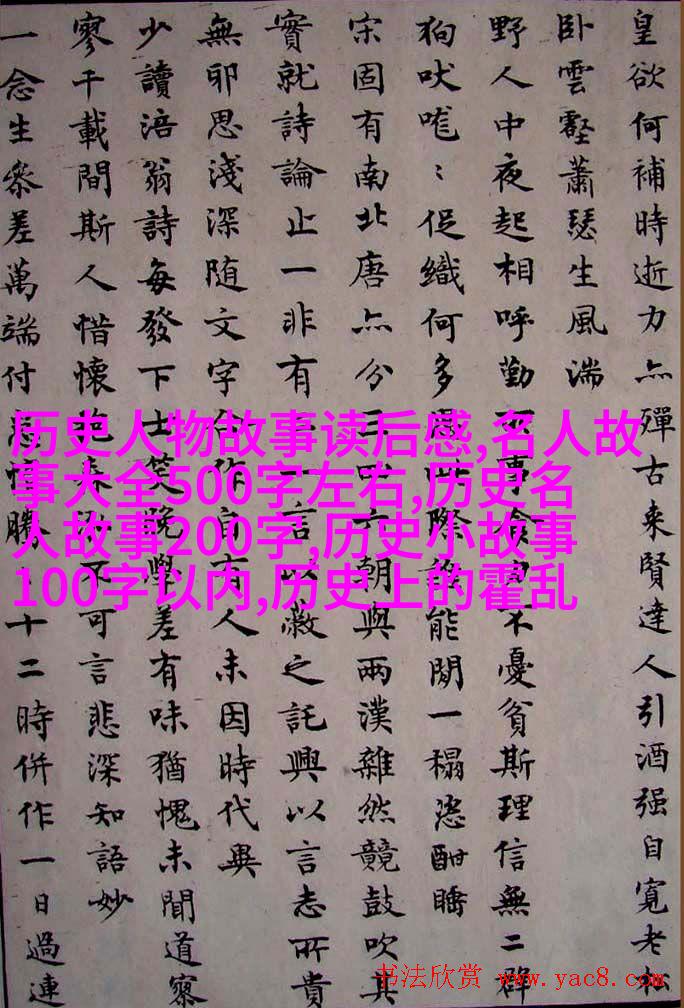 皇欲何補時逝力亦殫古来賢達人引酒强自寬老
卧雲壑蕭瑟生風湍
野人中夜起相呼勤事不憂貧斯理信無二群
狗吠嘊〻促織何多際能閑一榻恣酣睡
宋固有南北唐亦分三六朝與兩漢雜然競鼓吹其
實就詩論止一非有一言以蔽之託興以言志所貴
無邪思淺深随文字合作自有人未因時代異
少讀涪翁詩每發下士笑晚學差有味猶愧未聞道寥
寥千載間斯人惜懷不可言悲深知語妙
一念生參差萬端付勝十二時併作一日過連
历史人物故事读后感,名人故
事大全500字左右,历史名
人故事200字,历史小故事
100字以内,历史上的霍乱
书法欣赏 www.yac8.com